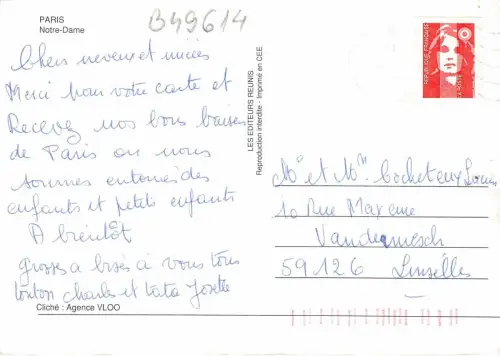 PARIS
Notre-Dame
B49614
Chers neveux et nièces
Merci pour votre carte et
Recevez nos bons baisers
de Paris ou nous
sommes entourés des
enfants et petits enfants
A bientôt
grosses a bises à vous tous
tonton charles et tata Josette
Cliché : Agence VLOO
LES EDITEURS REUNIS
Reproduction interdite - Imprimé en CEE
REPUBLIQUE FRANÇAISE
LA POSTE
Mr et Mme Cocheteux Louis
10 Rue Maxence
Vandermersch
59126 Linselles